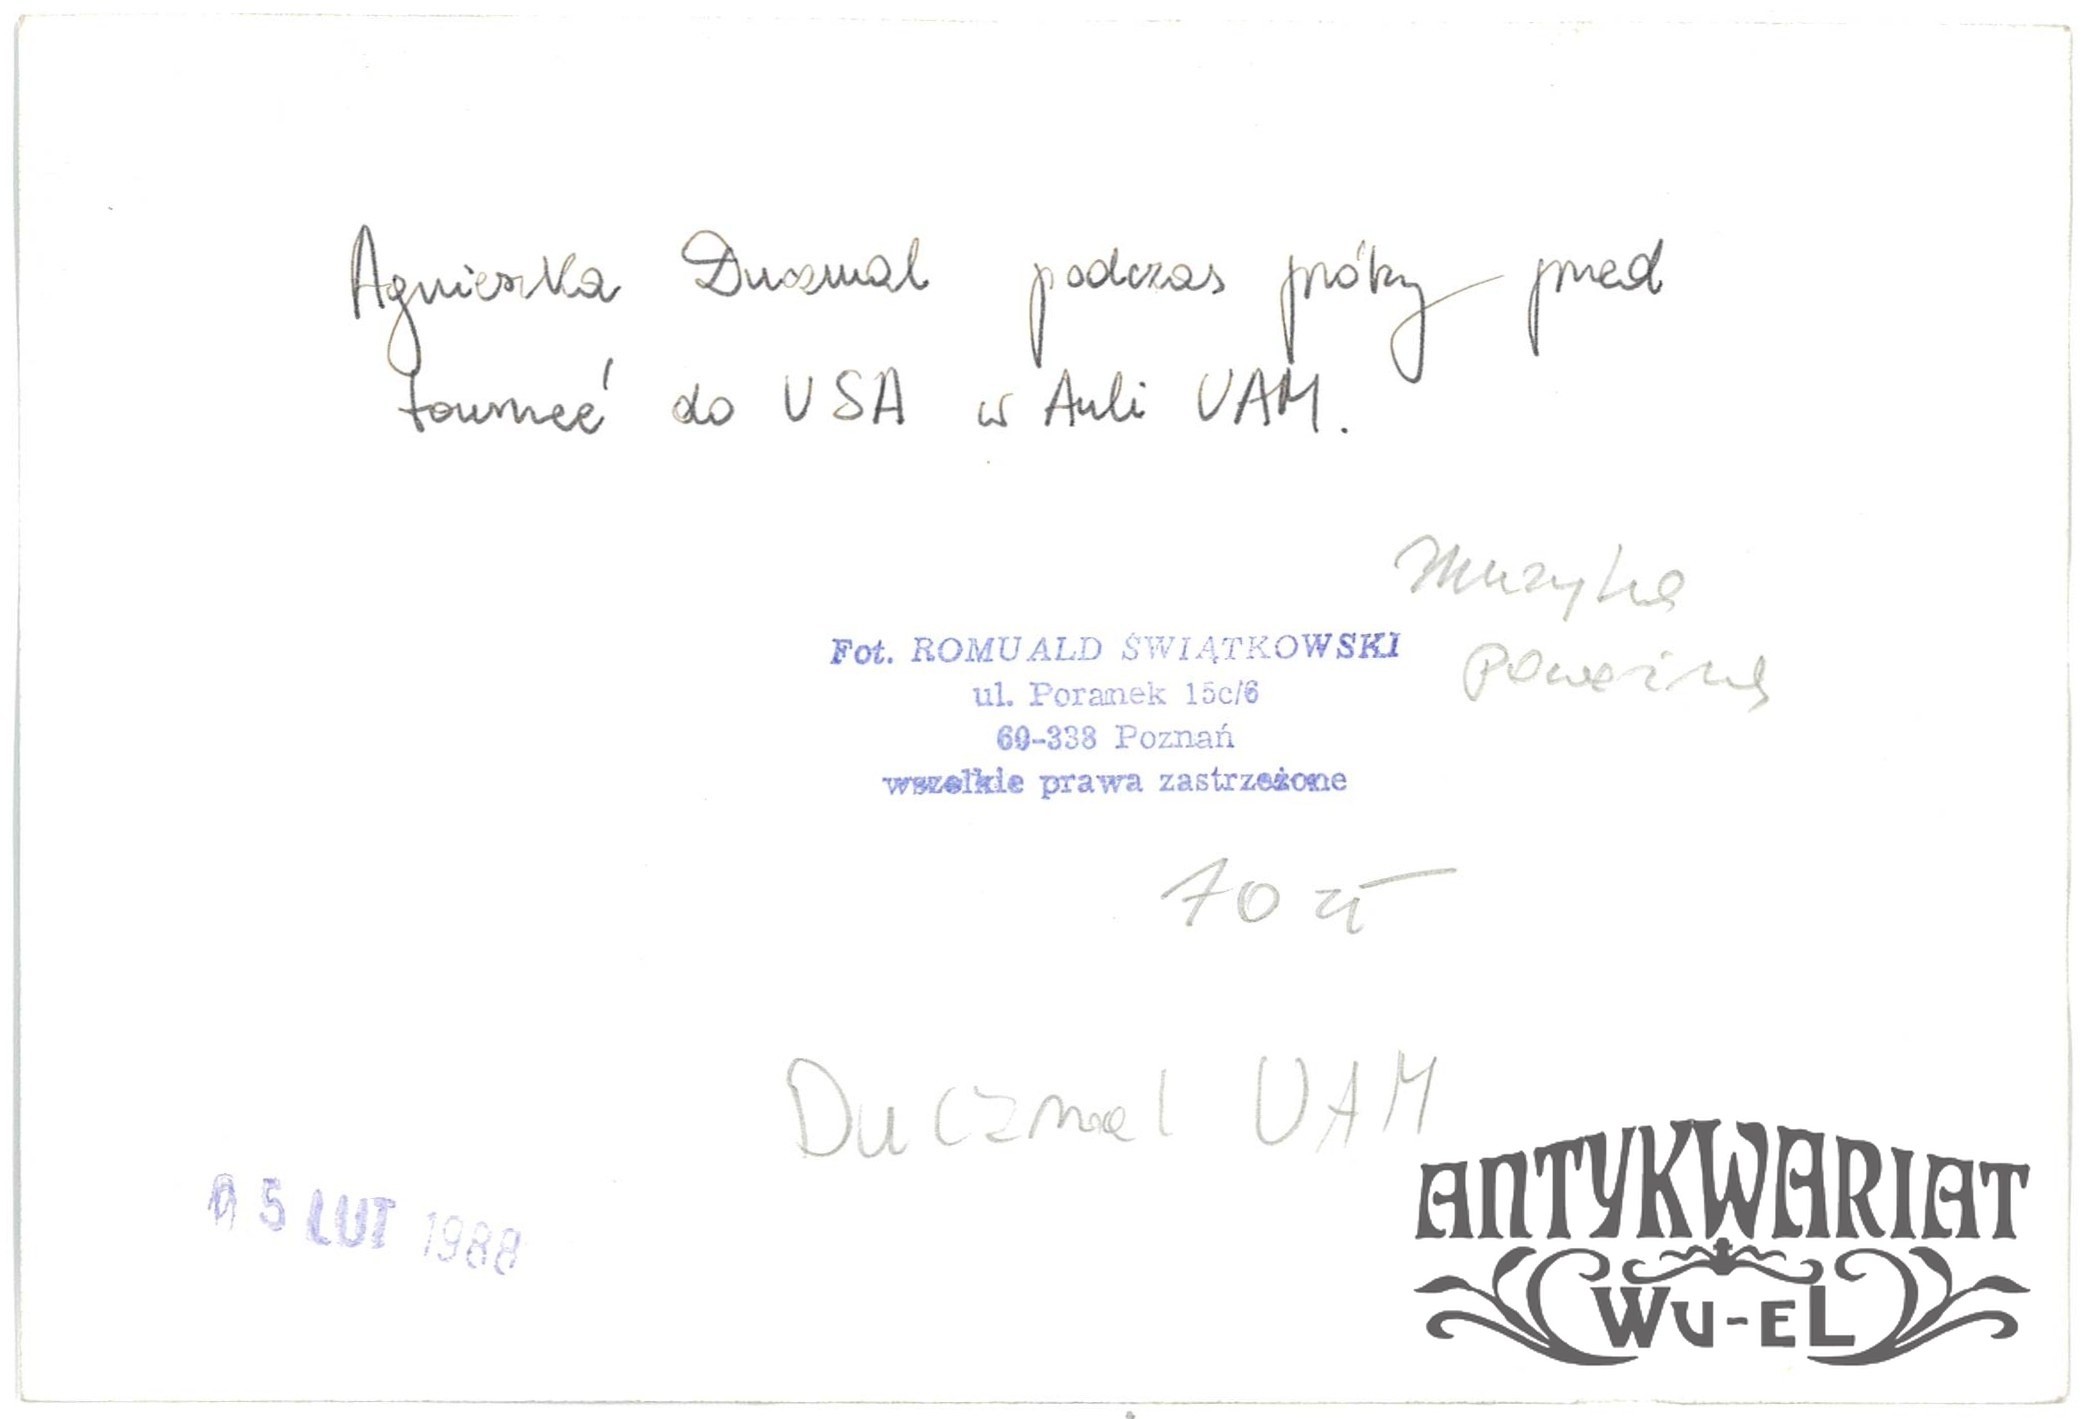 Agnieszka Duczmal podczas próby przed
tourneé do USA w Auli UAM.
Muzyka
poważna
Fot. ROMUALD ŚWIĄTKOWSKI
ul. Poranek 15c/6
60-338 Poznań
wszelkie prawa zastrzeżone
70 zł
Duczmal UAM
15 LUT 1988
ANTYKWARIAT
WU-EL